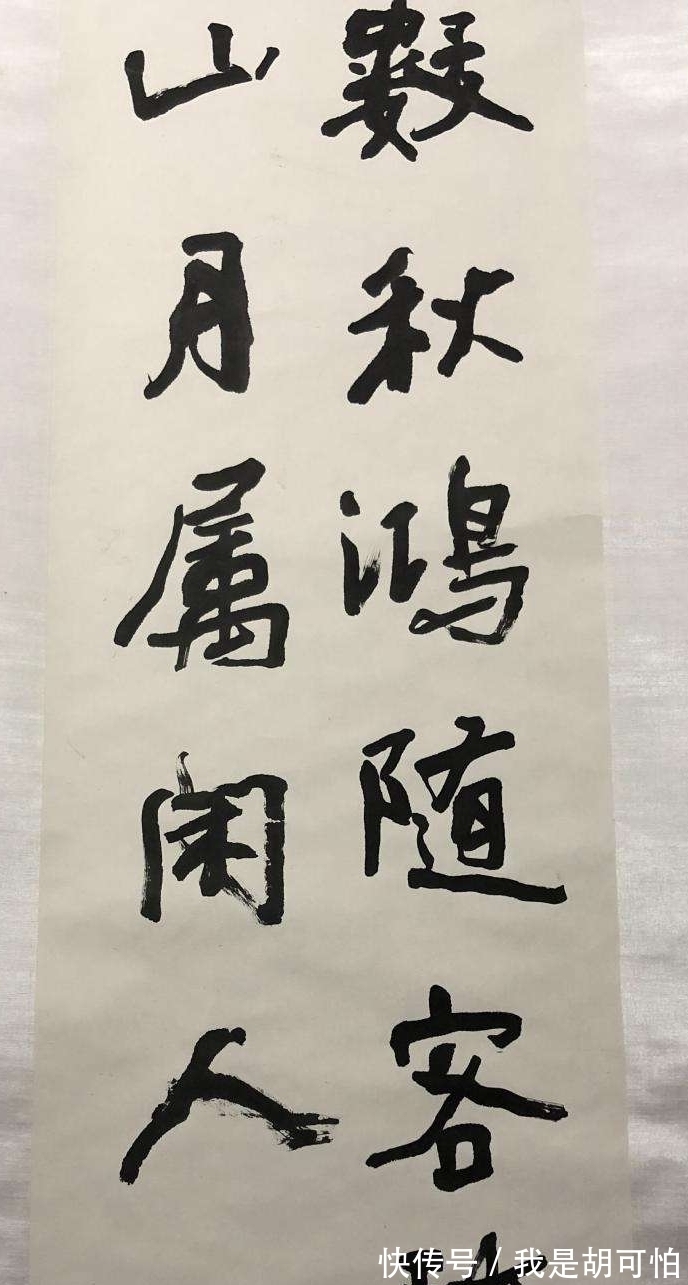 數秋鴻随客
山月属闲人
快传号 / 我是胡可怕